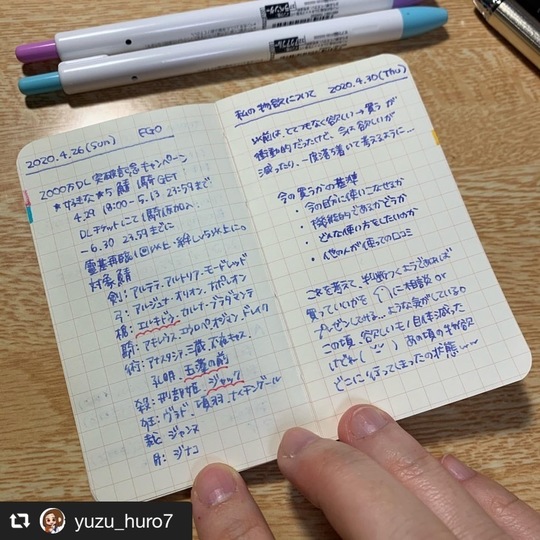 2020.4.26(Sun) FGO
2000万DL突破記念キャンペーン
★好きな★5 1騎GET
4.29 18:00〜5.13 23:59まで
DLチケットにて1騎仮加入
〜6.30 23:59までに
霊基再臨1回以上・絆Lv5以上に。
対象
剣:アルテラ、アルトリア、モードレッド
弓:アルジュナ、オリオン、ナポレオン
槍:エルキドゥ、カルナ、ブラダマンテ
騎:アキレウス、エウロペ、オジマン、ドレイク
術:アナスタシア、三蔵、不夜キャス
孔明、玉藻の前
殺:刑部姫、ジャック
狂:ヴラド、項羽、ナイチンゲール
裁:ジャンヌ
月:ジナコ
私の物欲について 2020.4.30(Thu)
以前は、とてつもなく欲しい→買う が
衝動的だったけど、今は欲しいが
減ったり、一度落ち着いて考えるように…
今の買うかの基準
・今の自分に使いこなせるか
・機能的であるかどうか
・どんな使い方をしたいのか
・他の人が使っての口コミ
これを考えて、判断つくようであれば
買っていいかを に相談 or
プレゼンしてる。ような気がしている。
この頃、欲しいモノ自体減った
けどね( ) あの頃の物欲
どこに行ってしまったの状態ww
yuzu_huro7